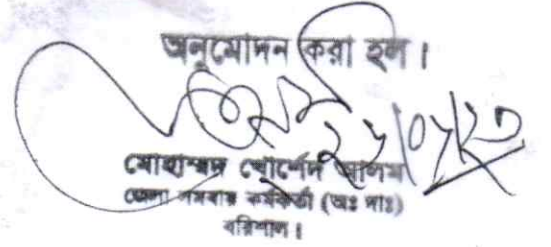 অনুমোদন করা হল।
মোহাম্মদ খোর্শেদ আলম
জেলা সমবায় কর্মকর্তা (অঃ দাঃ)
বরিশাল।